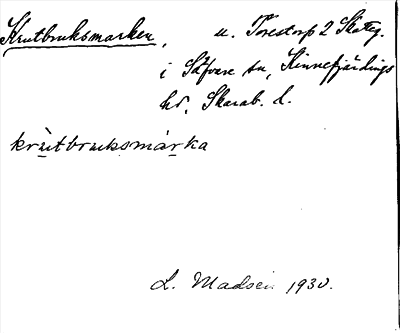 Krutbruksmarken, u. Torestorp 2 Skatteg.
i Säfvare sn, Kinnefjärdings
hd, Skarab. l.
krùtbruksmárka
L. Madsén 1930.